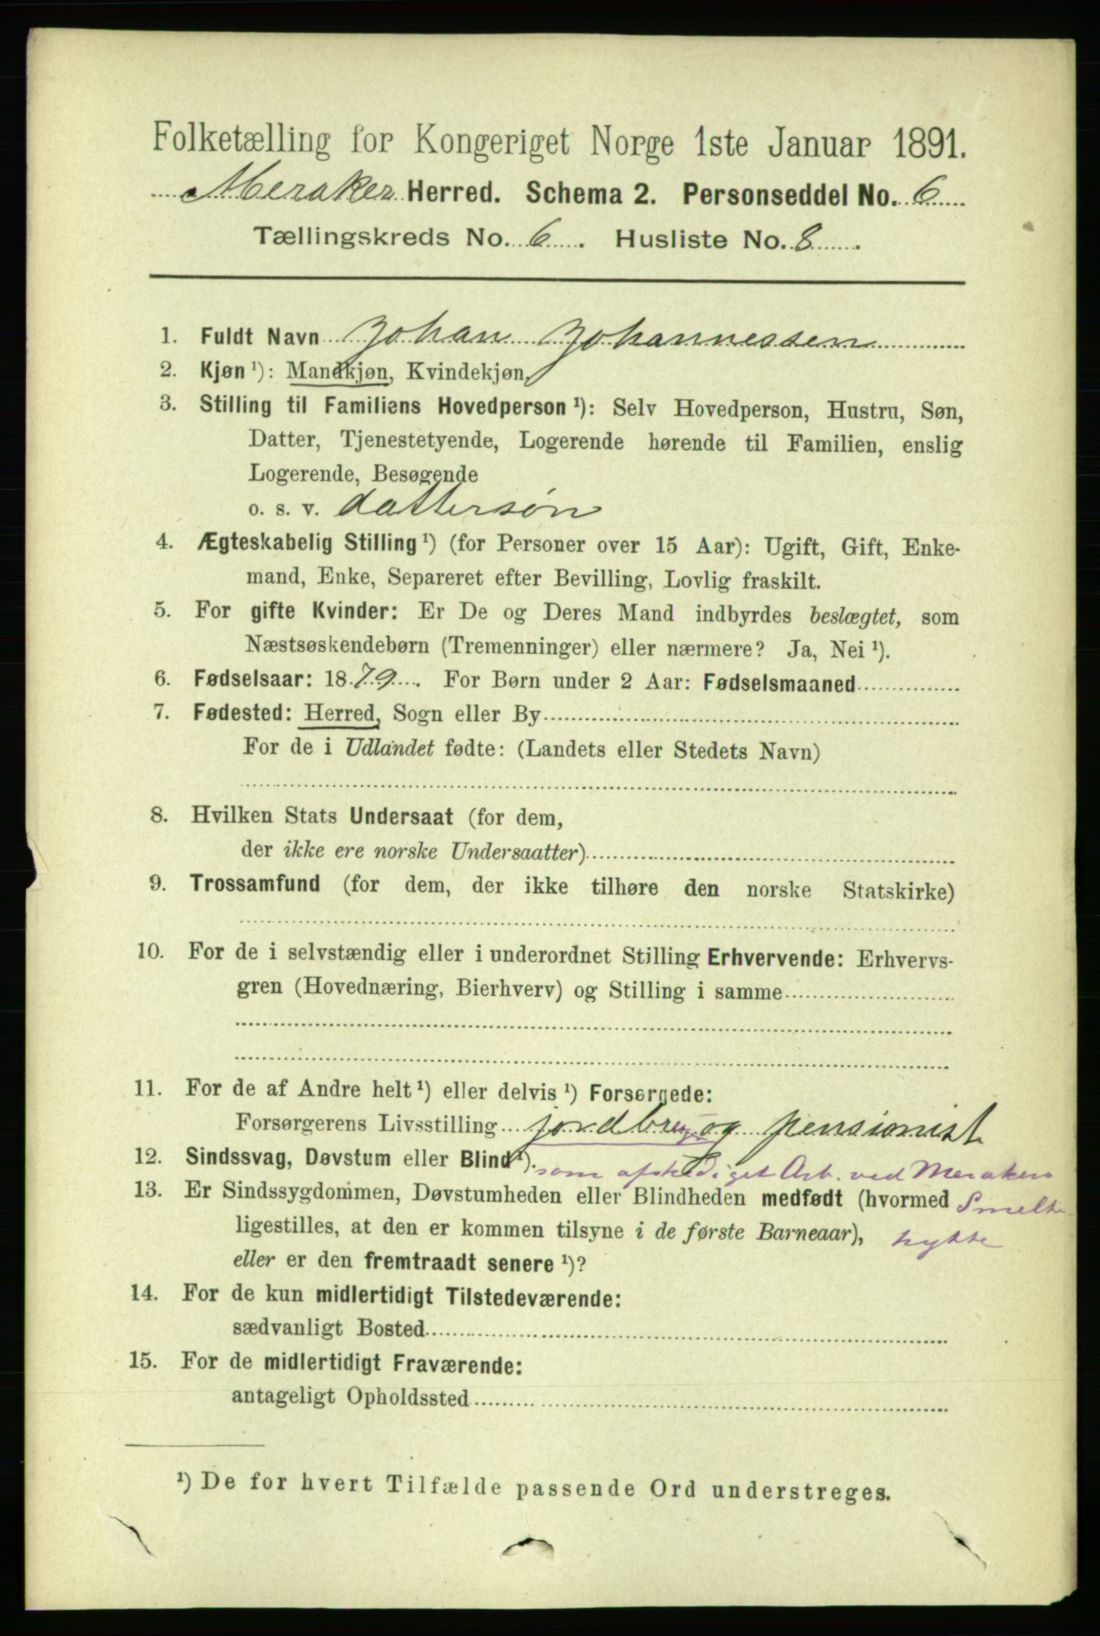 Folketælling for Kongeriget Norge 1ste Januar 1891.
Meraker Herred. Schema 2. Personseddel No. 6
Tællingskreds No. 6. Husliste No. 8.
1. Fuldt Navn Johan Johannessen
2. Kjøn ¹): Mandkjøn, Kvindekjøn,
3. Stilling til Familiens Hovedperson ¹): Selv Hovedperson, Hustru, Søn,
Datter, Tjenestetyende, Logerende hørende til Familien, enslig
Logerende, Besøgende
o. s. v. dattersøn
4. Ægteskabelig Stilling ¹) (for Personer over 15 Aar): Ugift, Gift, Enke-
mand, Enke, Separeret efter Bevilling, Lovlig fraskilt.
5. For gifte Kvinder: Er De og Deres Mand indbyrdes beslægtet, som
Næstsøskendebørn (Tremenninger) eller nærmere? Ja, Nei ¹).
6. Fødselsaar: 1879. For Børn under 2 Aar: Fødselsmaaned
7. Fødested: Herred, Sogn eller By
For de i Udlandet fødte: (Landets eller Stedets Navn)
8. Hvilken Stats Undersaat (for dem,
der ikke ere norske Undersaatter)
9. Trossamfund (for dem, der ikke tilhøre den norske Statskirke)
10. For de i selvstændig eller i underordnet Stilling Erhvervende: Erhvervs-
gren (Hovednæring, Bierhverv) og Stilling i samme
11. For de af Andre helt ¹) eller delvis ¹) Forsørgede:
Forsørgerens Livsstilling jordbrug og pensionist
12. Sindssvag, Døvstum eller Blind ¹). som afskediget Arb. ved Merakers
13. Er Sindssygdommen, Døvstumheden eller Blindheden medfødt (hvormed Smelte
ligestilles, at den er kommen tilsyne i de første Barneaar), hytte
eller er den fremtraadt senere ¹)?
14. For de kun midlertidigt Tilstedeværende:
sædvanligt Bosted
15. For de midlertidigt Fraværende:
antageligt Opholdssted
¹) De for hvert Tilfælde passende Ord understreges.